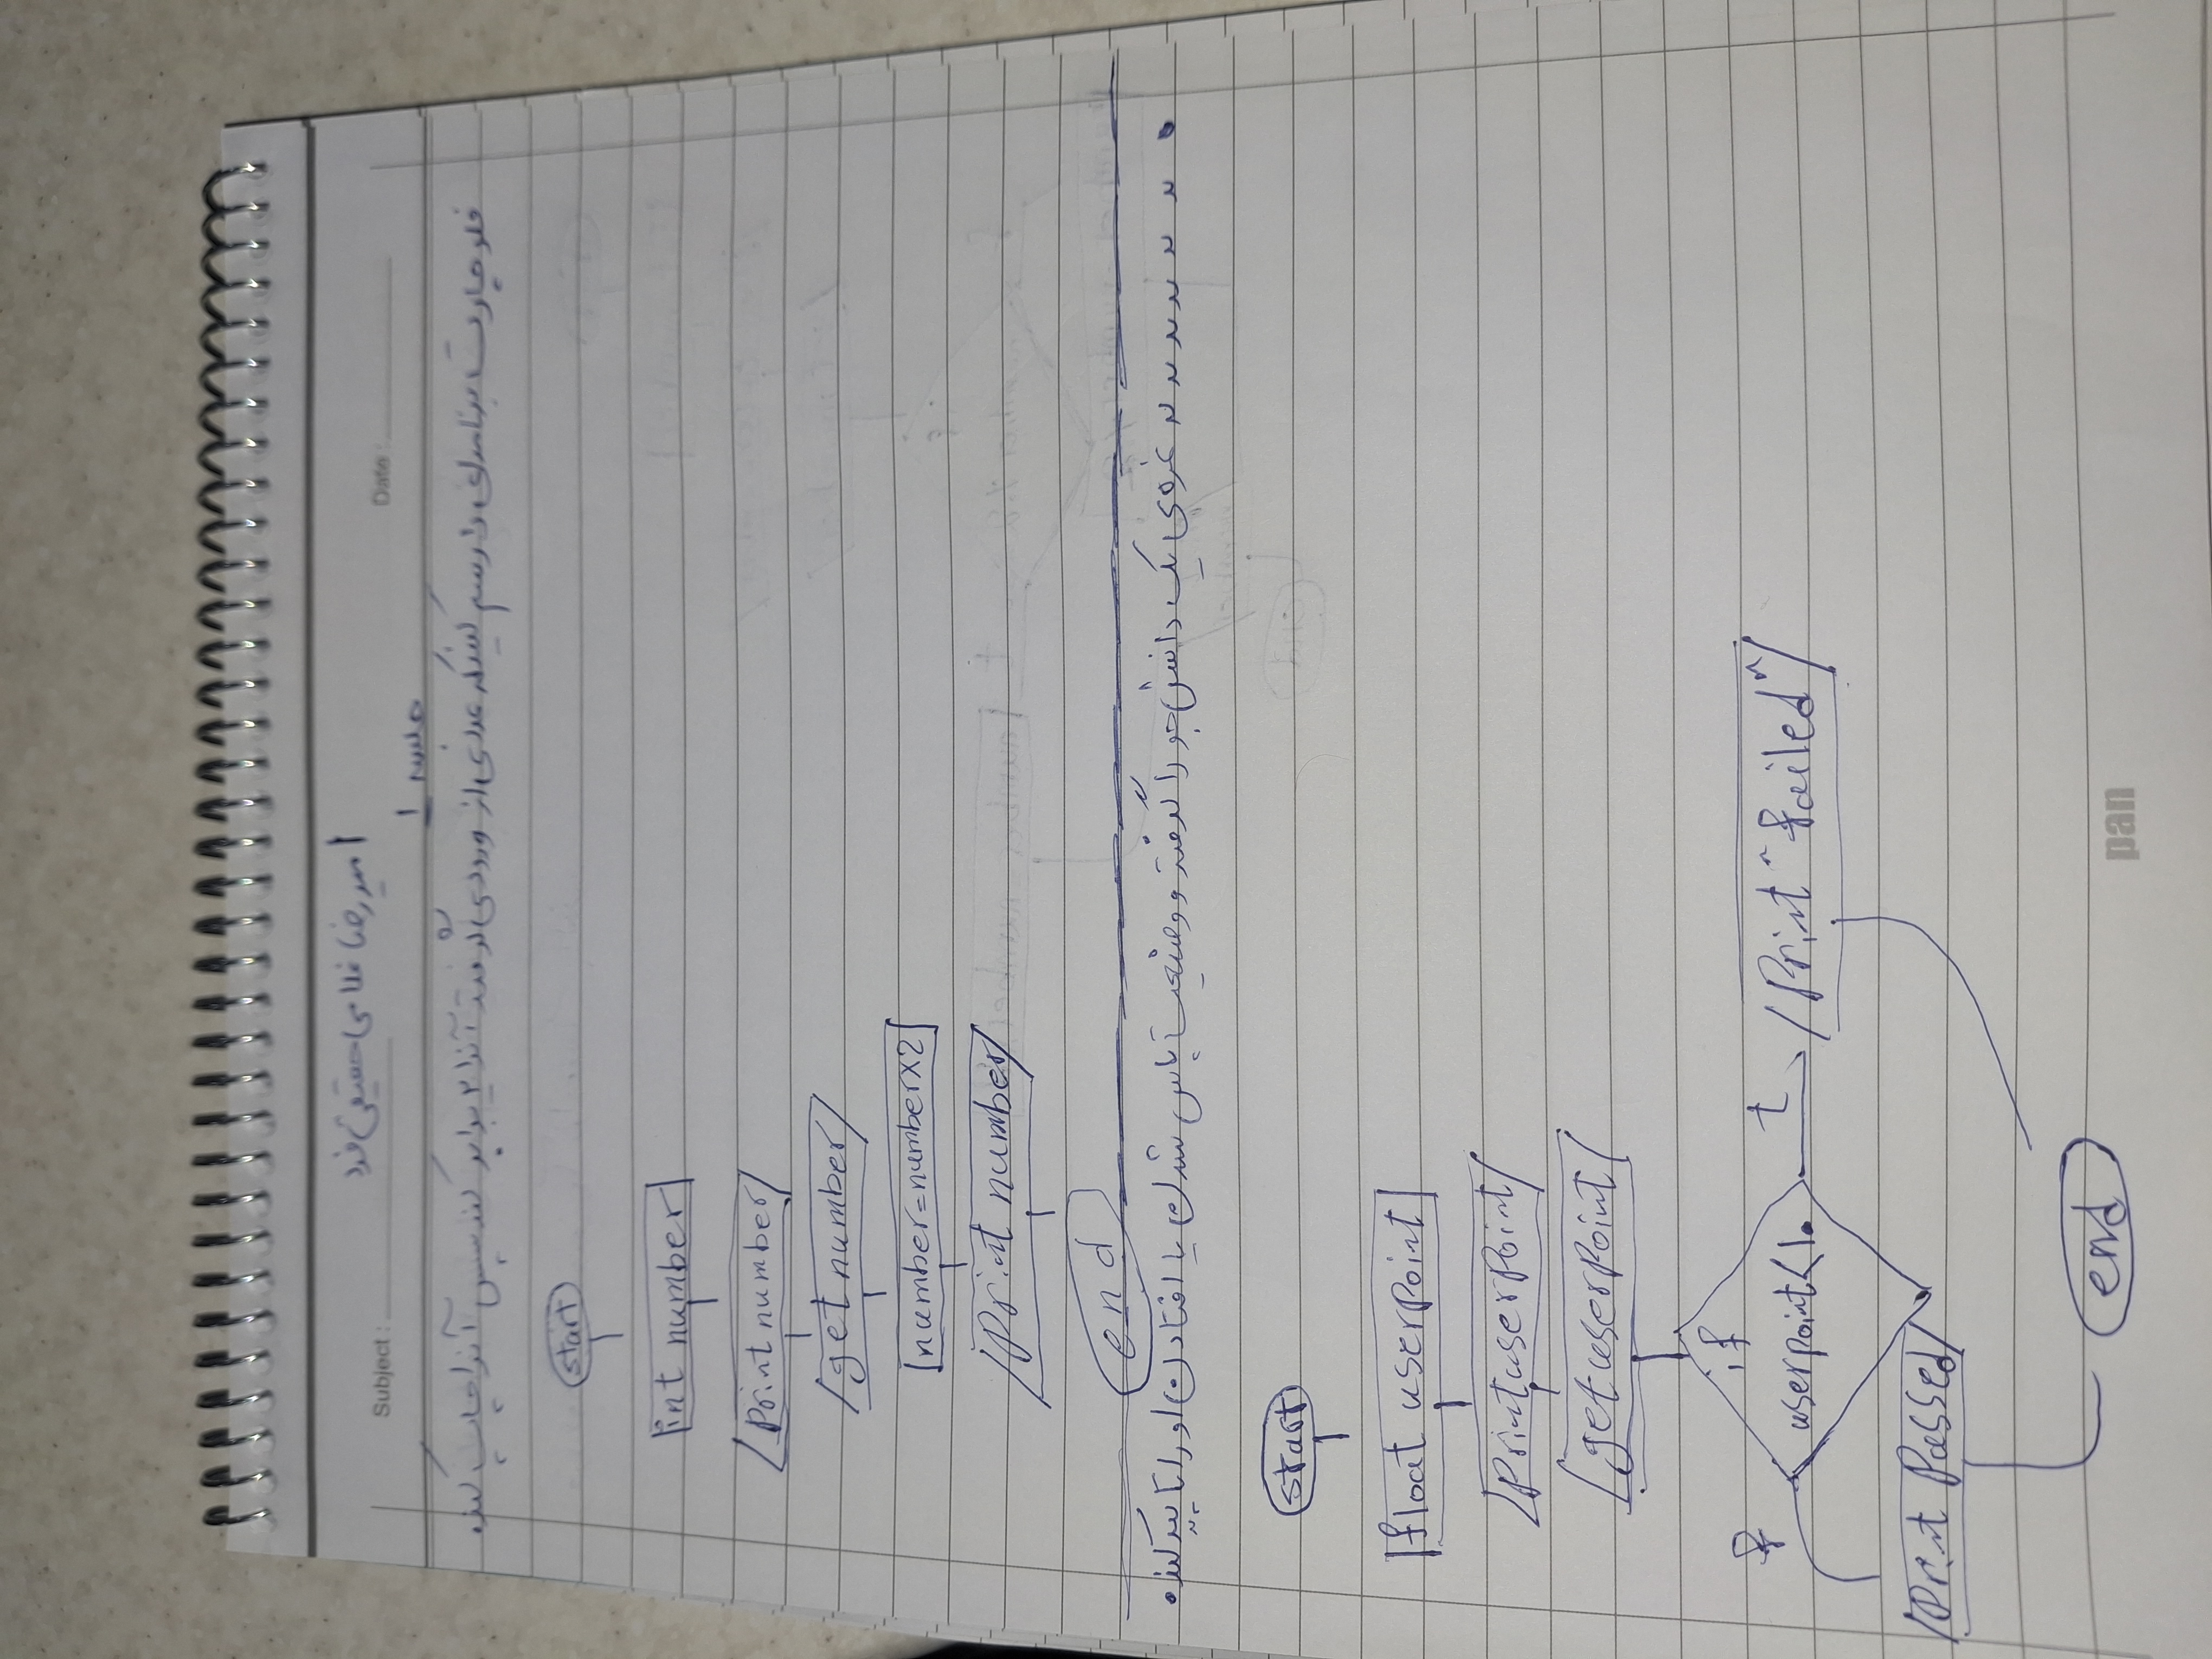 امیررضا غلامی حقیقی فرد
Subject :
Date :
جلسه 1
فلوچارت برنامه‌ای را رسم کنید که عددی از ورودی گرفته آنرا ۲ برابر کند سپس آنرا چاپ کند.
start
int number
Print number
get number
number=number×2
Print number
end
نمره‌ی یک دانش جو را گرفته و وضعیت پاس شدن یا افتادن او را تایید کند.
start
float userpoint
Print userPoint
get userPoint
if
f
t
userpoint<10
Print "failed"
Print Passed
end
pan